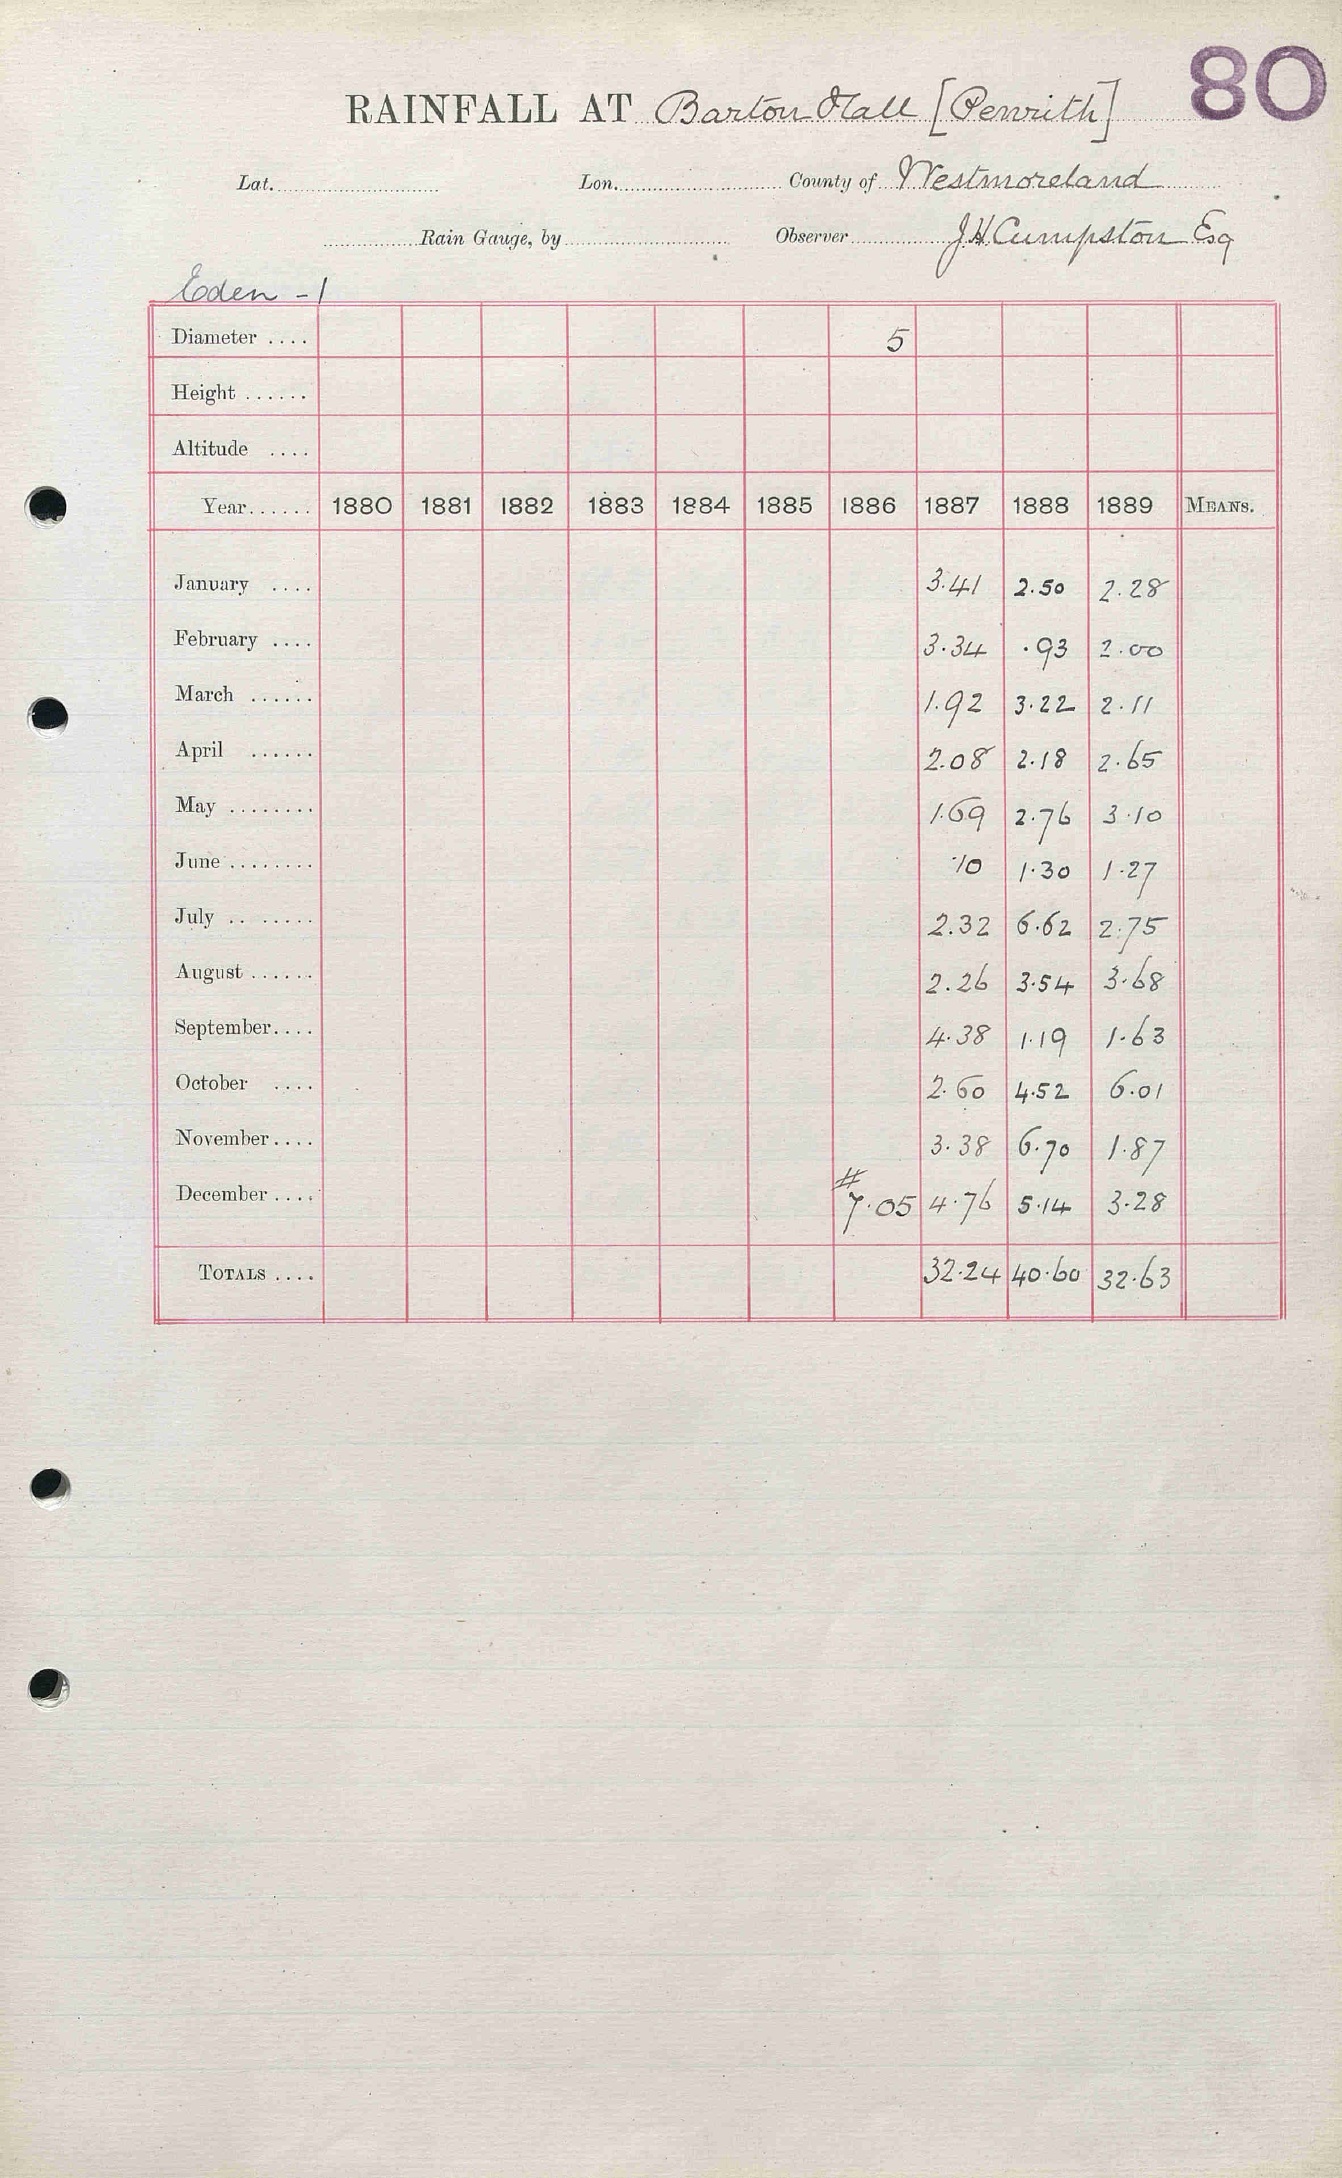 80
RAINFALL AT Barton Hall [Penrith]
Lat. Lon. County of Westmoreland
Rain Gauge, by Observer J.H. Cumpston Esq
Eden - 1
Diameter .... 5
Height ......
Altitude ....
Year...... 1880 1881 1882 1883 1884 1885 1886 1887 1888 1889 MEANS.
January .... 3.41 2.50 2.28
February .... 3.34 .93 2.00
March ...... 1.92 3.22 2.11
April ...... 2.08 2.18 2.65
May ........ 1.69 2.76 3.10
June ........ .10 1.30 1.27
July .. ...... 2.32 6.62 2.75
August ...... 2.26 3.54 3.68
September.... 4.38 1.19 1.63
October .... 2.60 4.52 6.01
November.... 3.38 6.70 1.87
December .... # 7.05 4.76 5.14 3.28
TOTALS .... 32.24 40.60 32.63